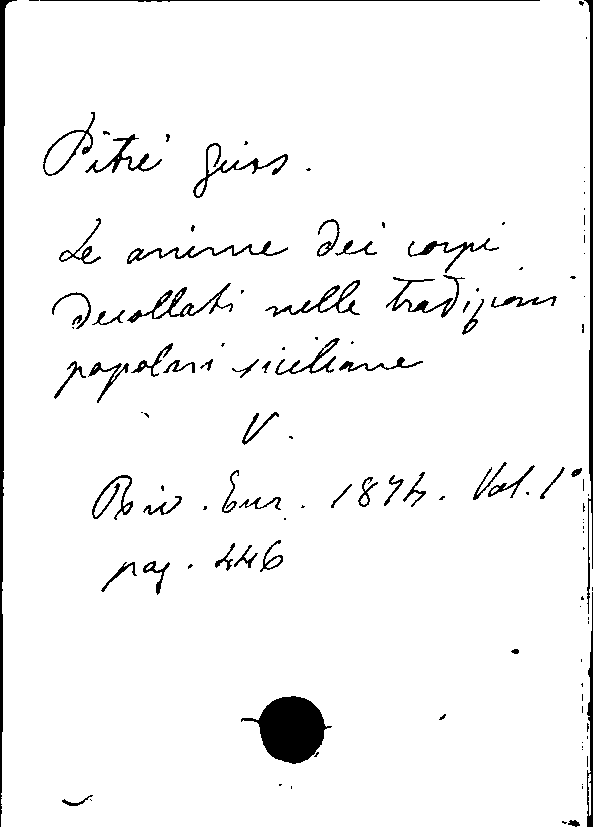 Pitré Gius.
Le anime dei corpi
decollati nelle tradizioni
popolari siciliane
V.
Riv. Eur. 1874. Vol. 1°
pag. 446